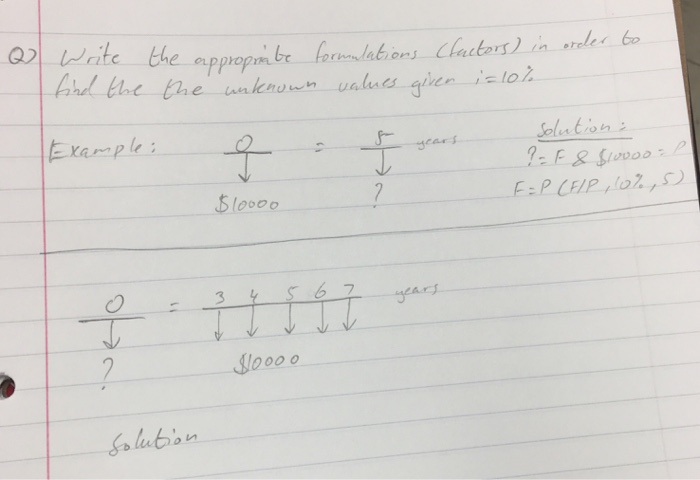 Q) Write the appropriate formulations (factors) in order to
find the the unknown values given i=10%
Example:
0 = 5 years
$10000 ?
Solution:
?=F & $10000=P
F=P(F/P,10%,5)
0 = 3 4 5 6 7 years
? $10000
Solution